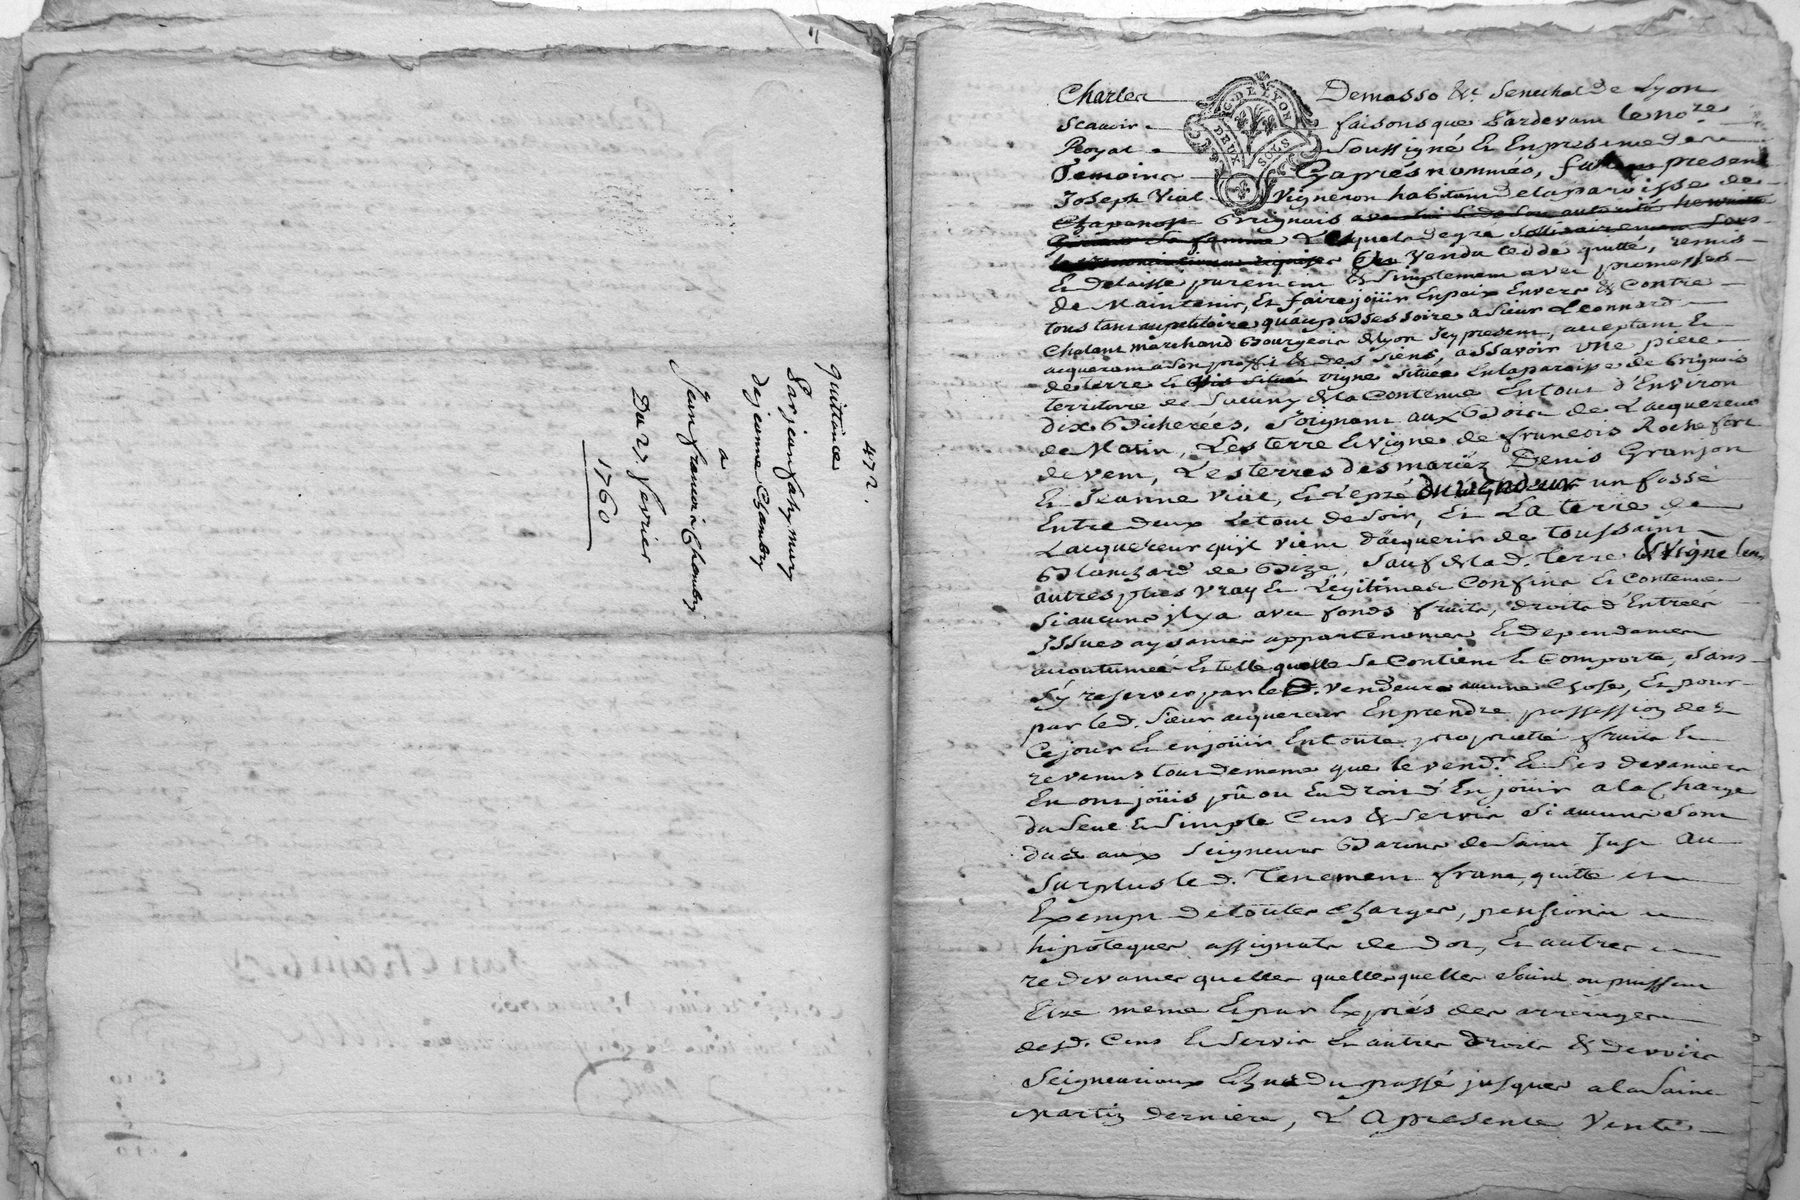 472.
quittance
Par jean fahy mury
de jeanne Chambry
a
Jean francois Chambry
Du 27 fevrier
1760
Charles Demasso &c. Senechal de Lyon
Scavoir faisons que Pardevant le no.re
Royal Soussigné Et En presence des
Temoins Cy aprés nommés, fut present
Joseph Vial Vigneron habitant de la paroisse de
Chaponost Brignais avec de son autorité
sa femme Lesquels de gré
Ont Vendu cedde quitté, remis
Et delaissé purement & Simplement avec promesses
de Maintenir, Et faire joüir En paix Envers & Contre
tous tant au petitoire qu'au possessoire a Sieur Leonnard
Chalant marchand Bourgeois de Lyon Icy present, acceptant Et
acquerant a Son proffit & des Siens, assavoir une piece
de terre Et vigne située En la paroisse de Brignais
territoire de Sucuny de la Contenue En tout d'Environ
dix Bicherées, Joignant aux Bois de L'acquereur
de Matin, Les terre Et vigne de francois Rochefort
de vent, Les terres des mariéz Denis Granjon
Et Jeanne Vial, Et Le pré du vendeur un fossé
Entre deux Le tout de Soir, Et La terre de
L'acquereur qu'jl vient d'acquerir de toussaint
Blanchard de Bize, Sauf de la d. terre & Vigne Leurs
autres plus vray Et Legitimes Confins Et Contenue
Si aucuns jl y a avec fonds fruits, droits d'Entrées
Issues aysances appartenances Et dependances
accoutumées Et telle quelle Se Contient Et Comporte, Sans
S'y reserver par le D. vendeur aucune Chose, Et pour
par le d. Sieur acquereur En prendre possession des
Ce jour Et en joüir En toute proprieté fruits Et
revenus tout de meme que le vend.r Et Ses devanciers
En ont joüis pû ou Eu droit d'En joüir a la Charge
du Seul Et Simple Cens & Servis Si aucuns Sont
dus aux Seigneurs Barons de Saint Just Au
Surplus le d. Tenement franc, quitte Et
Exempt de toutes Charges, pensions
hipoteques assignats de dot, Et autres
redevances quelles quelles quelles Soint ou puissent
Etre meme Et par Exprés des arrérages
desd. Cens Et Servis Et autres droits & devoirs
Seigneuriaux Echus du passé jusques a la Saint
Martin derniere, La presente Vente